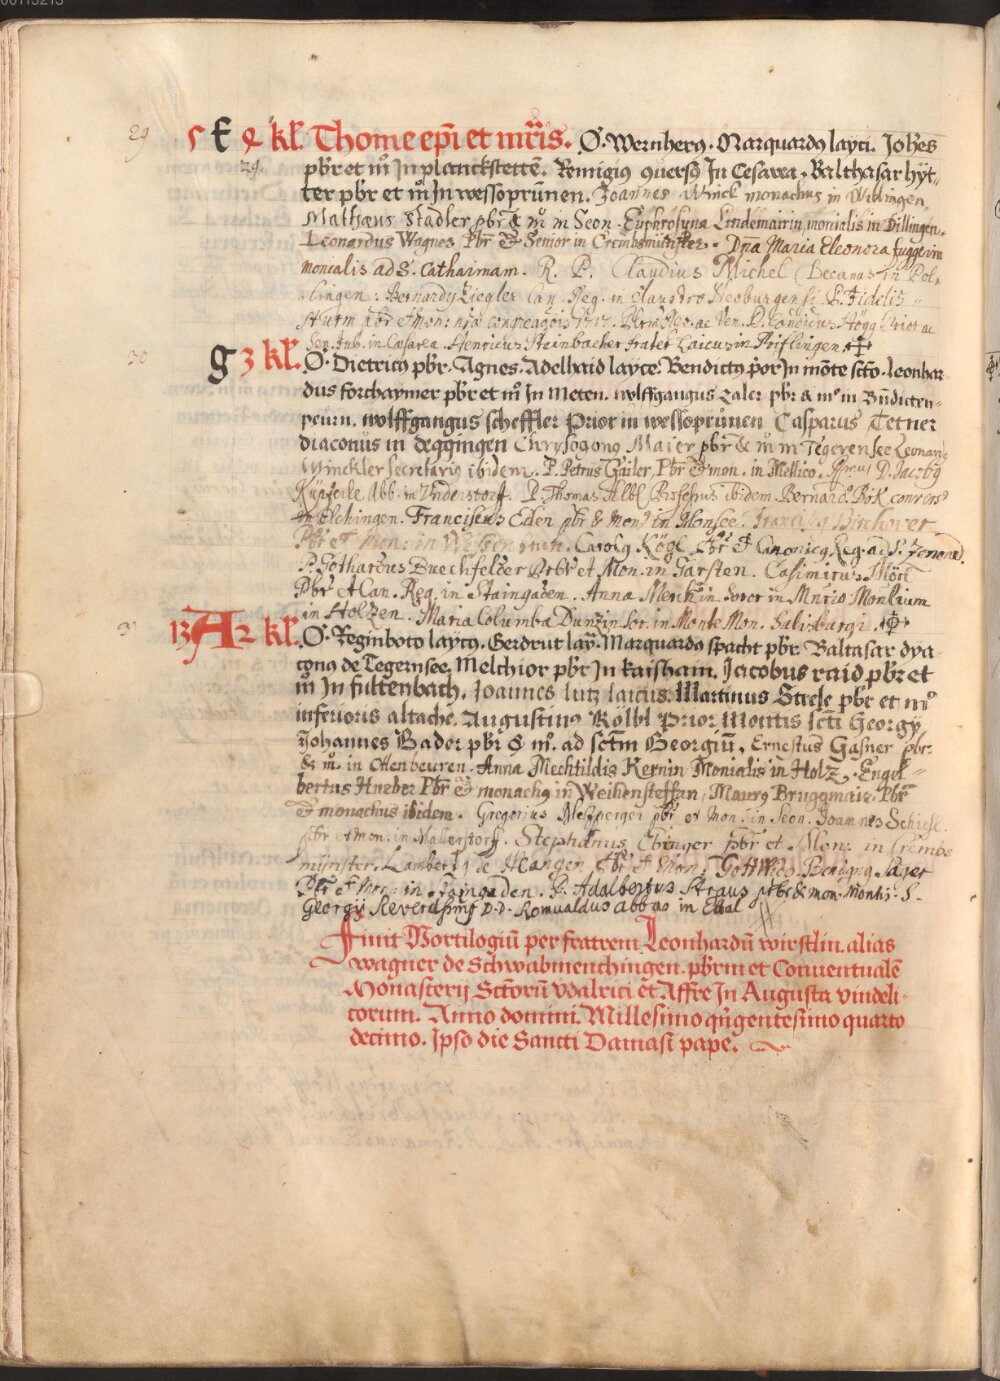 00113213
29 5 F 4 kl. Thome epi et mris. O. Wernherg. Marquardg layci. Johes
29. pbr et mo In planckstettē. Remigig In Cesarea. Balthasar hyt-
ter pbr et mo In wessoprūnen. Joannes Winck monachus in Wiblingen.
Mathæus Stadler pbr & mo in Seon. Euphrosyna Lindemairin monialis in Dillingen.
Leonardus Wagner Pbr & Senior in Crembsmünster. Dna Maria Eleonora fuggerin
monialis ad S. Catharinam. R. P. Claudius Michel Decanus in Pol-
lingen. Bernardg Ziegler Can. Reg. in claustro Neoburgensi. P. Fidelis
Sturm pbr et mon: ac Ven. P. Högg
Sen. Jub. in Cæsarea. Henricus Stainbacher frater Laicus in Priflingen.
30 g 3 kl. O. Dietricg pbr. Agnes. Adelhaid layce. Bendictg por In mōte scto. Leonhar-
dus forchaymer pbr et mo In Meten. wolffgangus Zaler pbr & mo in Bñdicten-
peurn. wolffgangus scheffler Prior in wessoprūnen Casparus Tetner
diaconus in deggingen Chrysogong Maier pbr & mo in Tegernsee Leonardg
Winckler secretarig ibidem. P. Petrus Gailer Pbr & mon. in Mellico. D. Jacobg
Küpferle Abb. in Understorf. P. Thomas Albl Professus ibidem. Bernard. Bök convers
in Elchingen. Franciscus Eden pbr & Mon in Monsee. Birhover
Pbr et Mon: in Carolg Kögl Pbr et Canonicg Reg. ad S. Zenonē.
P. Gothardus Buechfelder Pbr et Mon. in Garsten. Casimirus Mörl
Pbr et Can. Reg. in Staingaden. Anna Merckin Soror in Montium
in Holzen. Maria Columba Dunzin Sor. in Monte Mon. Salisburgi.
31 13 A 2 kl. O. Reginboto laycg. Gerdrut lay. Marquardg spacht pbr. Baltasar dya-
cong de Tegernsee. Melchior pbr In kaishaim. Jacobus raid pbr et
mo In fultenbach. Joannes lutz laicus. Martinus Strele pbr et mo
inferioris altache. Augusting Kolbl Prior Montis scti Georgy
Johannes Bader pbr & mo. ad sctm Georgiū. Ernestus Gasner pbr:
& mo. in Ottenbeuren. Anna Mechtildis Kernin Monialis in Holz. Engel-
bertus Hueber Pbr & monachg in Weihensteffan. Maurg Bruggmair Pbr
& monachus ibidem. Gregorius Mesperger pbr et mon. in Seon. Joannes Schiesl
pbr et mon: in Mallerstorff. Stephanus Ebinger pbr et Mon: in Crembs-
münster. Lambertg de Heangen Pbr et Mon. Gottwic. Benigng Sayer
Pbr et Mon: in Staingaden. P. Adalbertus Straus pbr & mon. Montis S.
Georgy D. D. Romualdus abbas in Etal
Finit Mortilogiū per fratrem Leonhardū wirstlin alias
wagner de Schwabmenchingen. pbrm et Conventualē
Monasterij Sctorū vdalrici et Affre In Augusta vindeli-
corum. Anno domini. Millesimo qngentesimo quarto
decimo. Ipso die Sancti Damasi pape.